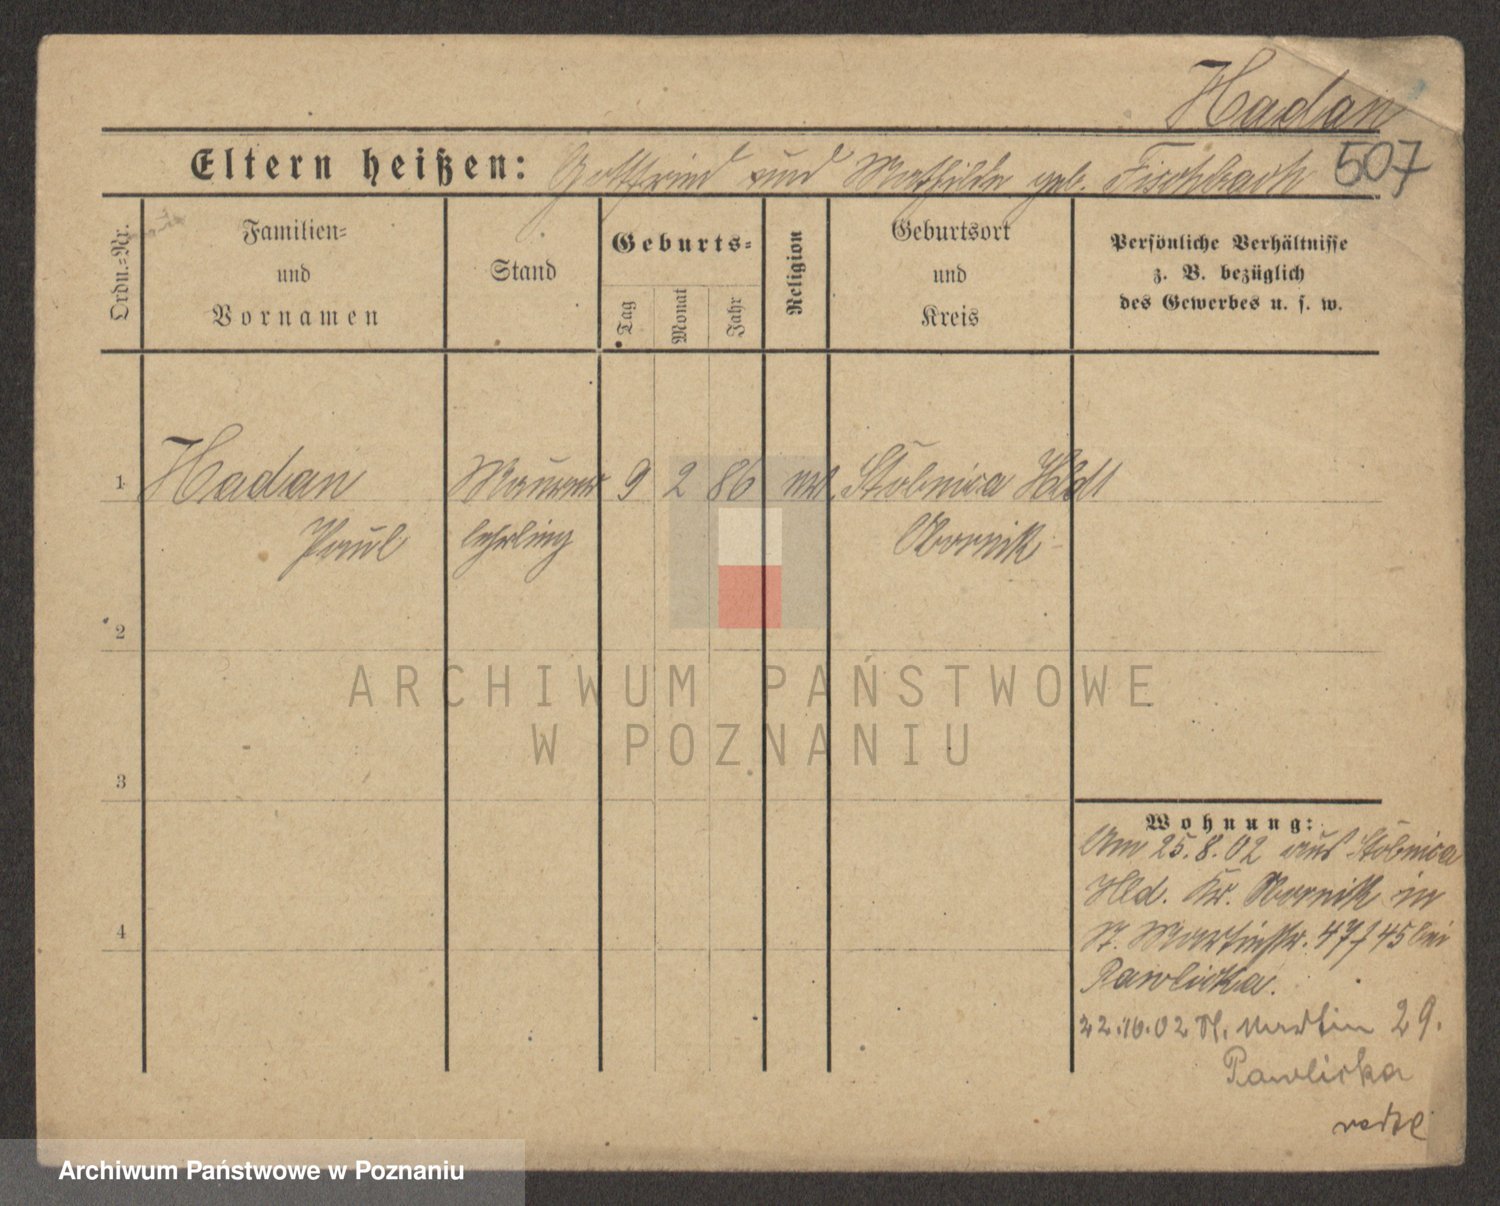 Hadan
507
Eltern heißen: Gottfried und Mathilde geb. Fischbach
Ordn.=Nr.
Familien=
und
Vornamen
Stand
Geburts=
Tag
Monat
Jahr
Religion
Geburtsort
und
Kreis
Persönliche Verhältnisse
z. B. bezüglich
des Gewerbes u. s. w.
1 Hadan Maurer 9 2 86 Stobnica Hldt
Paul lehrling Obornik
2
3
4
Wohnung:
Am 25.8.02 aus Stobnica
Hld. Kr. Obornik in
St. Martinstr. 47/45 bei
Pawlicka.
22.10.02 St. Martin 29.
Pawlicka
ARCHIWUM PAŃSTWOWE
W POZNANIU
Archiwum Państwowe w Poznaniu